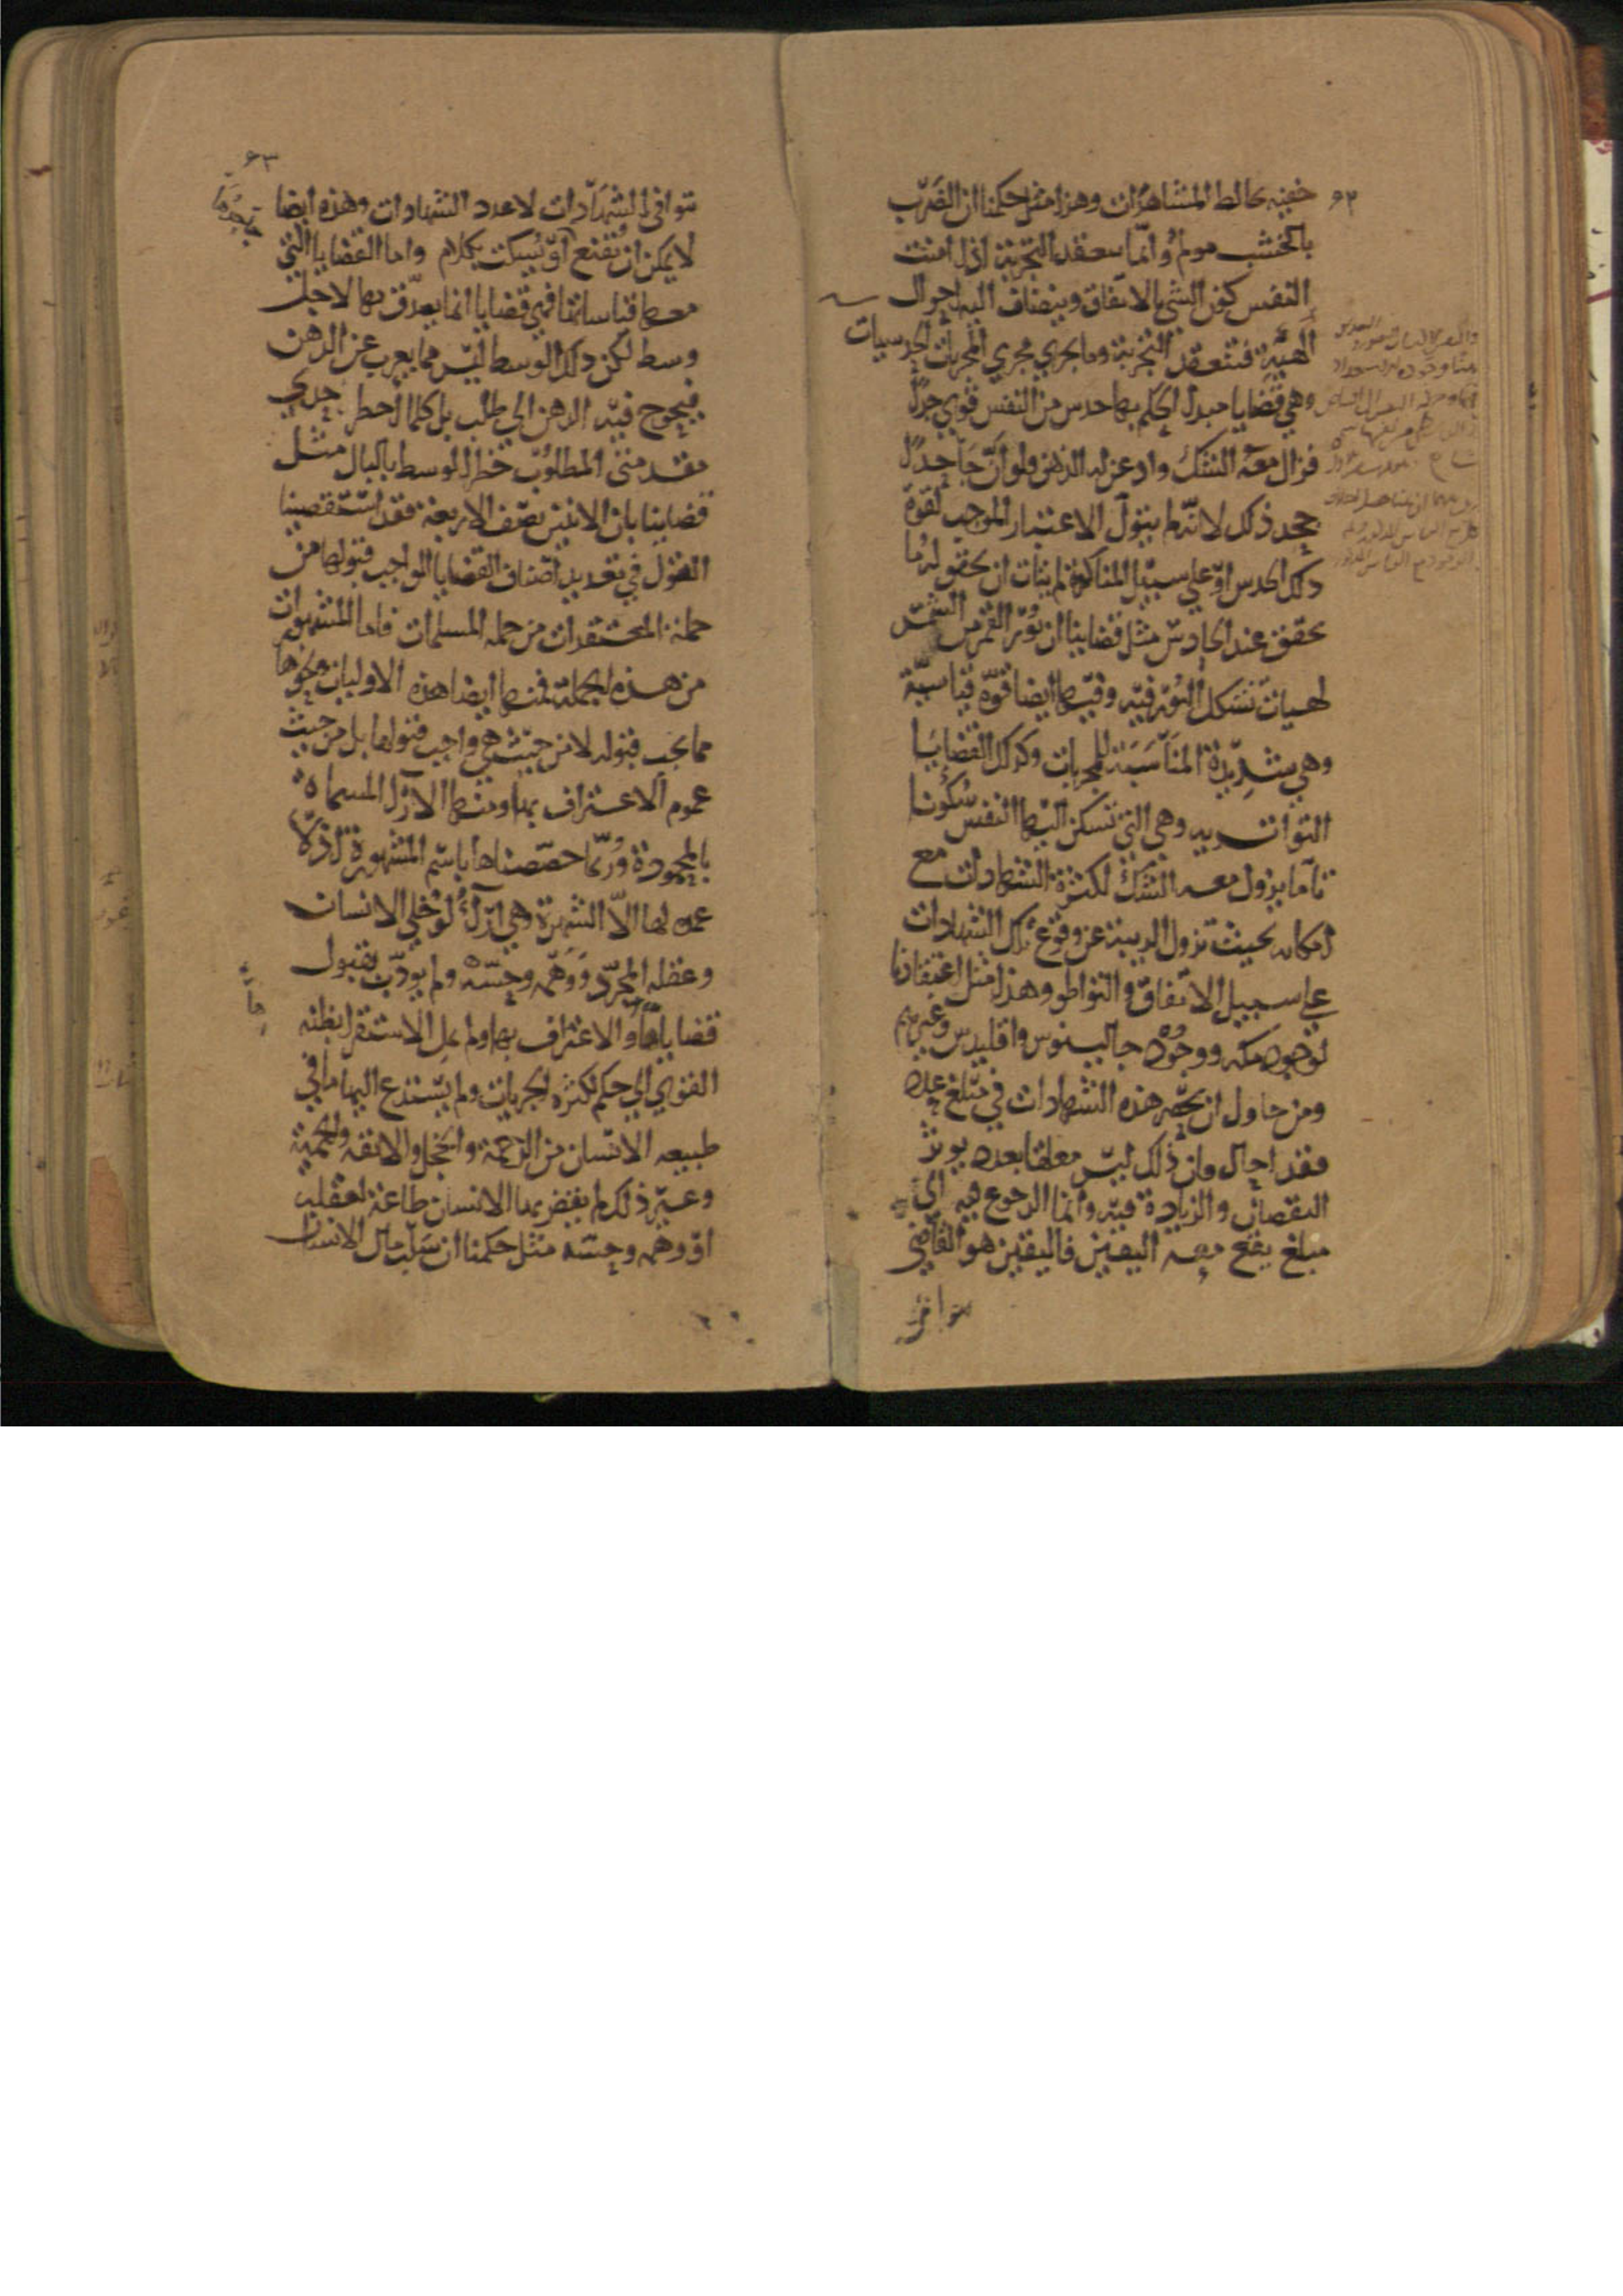 ٦٢
خفيه تخالط المشاهدات وهذا مثل حكمنا ان الضرب
بالخشب مولم وانما سعقد التجربة اذا امنت
النفس كون الشي بالاتفاق وينضاف اليه احوال
الهيئة فتنعقد التجربة ومما يجري مجري المجربات الحدسيات
وهي قضايا مبدا الحكم بها حدس من النفس قوي جدا
فزال معه الشك واذعن له الذهن ولو ان جاحدا
جحد ذلك لانه لم يتول الاعتبار الموجب لقوة
ذلك الحدس او علي سبيل المناكرة لم يتات ان يحقق له ما
تحقق عند الحادس مثل قضاينا ان نور القمر من الشمس
لهيات تشكل النور فيه وفيها ايضا قوة قياسية
وهي شديدة المناسبة للمجربات وكذلك القضايا
التواترية وهي التي تسكن اليها النفس سكونا
تاما يزول معه الشك لكثرة الشهادات مع
امكانه بحيث تزول الريبة عن وقوع تلك الشهادات
علي سبيل الاتفاق والتواطو وهذا مثل اعتقادنا
لوجود مكه ووجود جالينوس واقليدس وغيرهم
ومن حاول ان يحصر هذه الشهادات في مبلغ عدد
فقد احال فان ذلك ليس معلقا بعدد يوثر
النقصان والزيادة فيه وانما الرجوع فيه الي
مبلغ يقع معه اليقين فاليقين هو القاضي
بتوافي
٦٣
بتوافي الشهادات لا عدد الشهادات وهذه ايضا
لا يمكن ان تقنع او تسكت بكلام واما القضايا التي
معها قياساتها فهي قضايا انما يصدق بها لاجل
وسط لكن ذلك الوسط ليس مما يعرب عن الذهن
فيحوج فيه الذهن الي طلب بل كلما اخطر جدي
مقدمتي المطلوب خطر الوسط بالبال مثل
قضاينا بان الاثنين نصف الاربعة فقد استقصينا
القول في تعديد اصناف القضايا الواجب قبولها من
جملة المعتقدات من جمله المسلمات فاما المشهورات
من هذه الجملة فمنها ايضا هذه الاوليات ونحوها
مما يجب قبوله لا من حيث هي واجب قبولها بل من حيث
عموم الاعتراف بها ومنها الارا المسماة
بالمحمودة وربما خصصناها باسم المشهورة اذ لا
عمده لها الا الشهرة وهي ارا لو خلي الانسان
وعقله المجرد ووهمه وحسه ولم يودب بقبول
قضاياها والاعتراف بها ولم يمل الاستقرا بظنه
القوي الي حكم لكثره الجزيات ولم يستدع اليها ما في
طبيعه الانسان من الرحمة والخجل والانفه والحمية
وغير ذلك لم يقض بها الانسان طاعة لعقله
او وهمه وحسه مثل حكمنا ان سلب مال الانسان